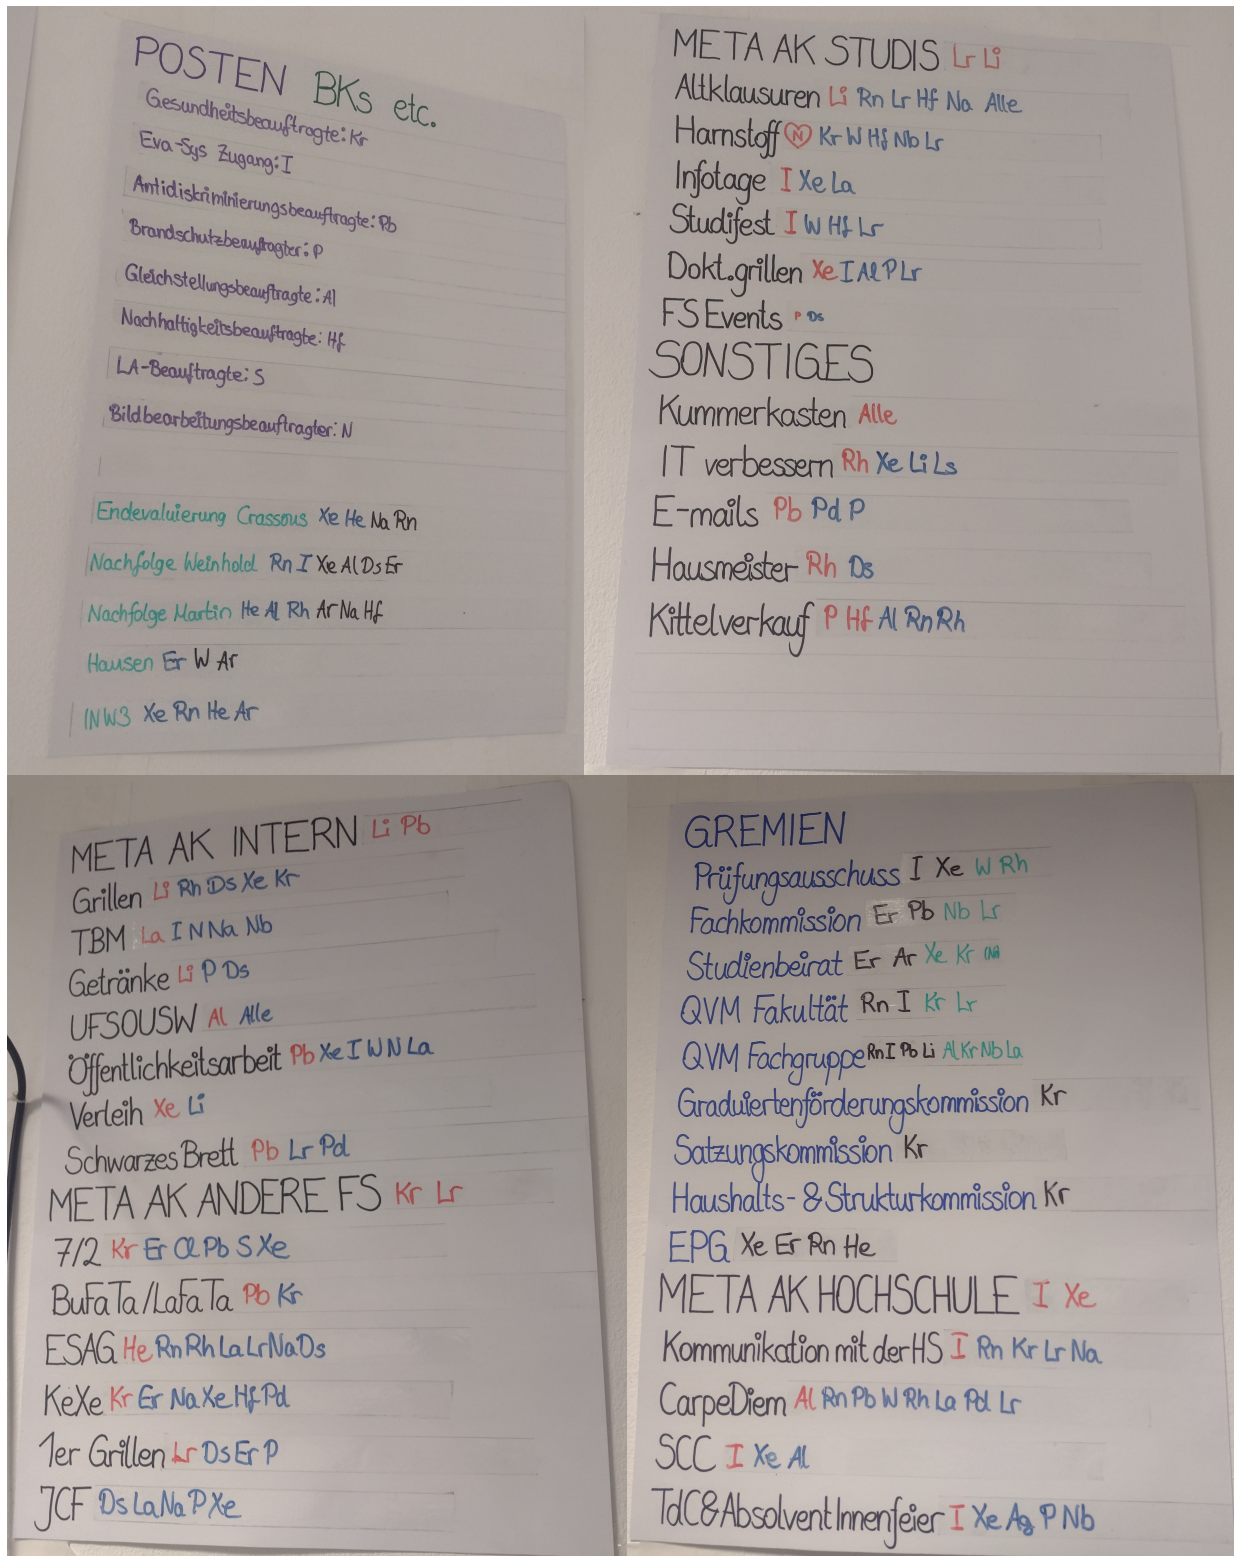 POSTEN BKs etc.
Gesundheitsbeauftragte: Kr
Eva-Sys Zugang: I
Antidiskriminierungsbeauftragte: Pb
Brandschutzbeauftragter: P
Gleichstellungsbeauftragte: Al
Nachhaltigkeitsbeauftragte: Hf
LA-Beauftragte: S
Bildbearbeitungsbeauftragter: N
Endevaluierung Crassous Xe He Na Rn
Nachfolge Weinhold Rn I Xe Al Ds Er
Nachfolge Martin He Al Rh Ar Na Hf
Hausen Er W Ar
INW3 Xe Rn He Ar
META AK STUDIS Lr Li
Altklausuren Li Rn Lr Hf Na Alle
Harnstoff N Kr W Hf Nb Lr
Infotage I Xe La
Studifest I W Hf Lr
Dokt.grillen Xe I Al P Lr
FS Events P Ds
SONSTIGES
Kummerkasten Alle
IT verbessern Rh Xe Li Ls
E-mails Pb Pd P
Hausmeister Rh Ds
Kittelverkauf P Hf Al Rn Rh
META AK INTERN Li Pb
Grillen Li Rh Ds Xe Kr
TBM La I N Na Nb
Getränke Li P Ds
UFSOUSW Al Alle
Öffentlichkeitsarbeit Pb Xe I W N La
Verleih Xe Li
Schwarzes Brett Pb Lr Pd
META AK ANDERE FS Kr Lr
7/2 Kr Er Cl Pb S Xe
BuFaTa/LaFaTa Pb Kr
ESAG He Rn Rh La Lr Na Ds
KeXe Kr Er Na Xe Hf Pd
1er Grillen Lr Ds Er P
JCF Ds La Na P Xe
GREMIEN
Prüfungsausschuss I Xe W Rh
Fachkommission Er Pb Nb Lr
Studienbeirat Er Ar Xe Kr
QVM Fakultät Rn I Kr Lr
QVM Fachgruppe Rn I Pb Li Al Kr Nb La
Graduiertenförderungskommission Kr
Satzungskommission Kr
Haushalts- & Strukturkommission Kr
EPG Xe Er Rn He
META AK HOCHSCHULE I Xe
Kommunikation mit der HS I Rn Kr Lr Na
CarpeDiem Al Rn Pb W Rh La Pd Lr
SCC I Xe Al
TdC & AbsolventInnenfeier I Xe Ag P Nb